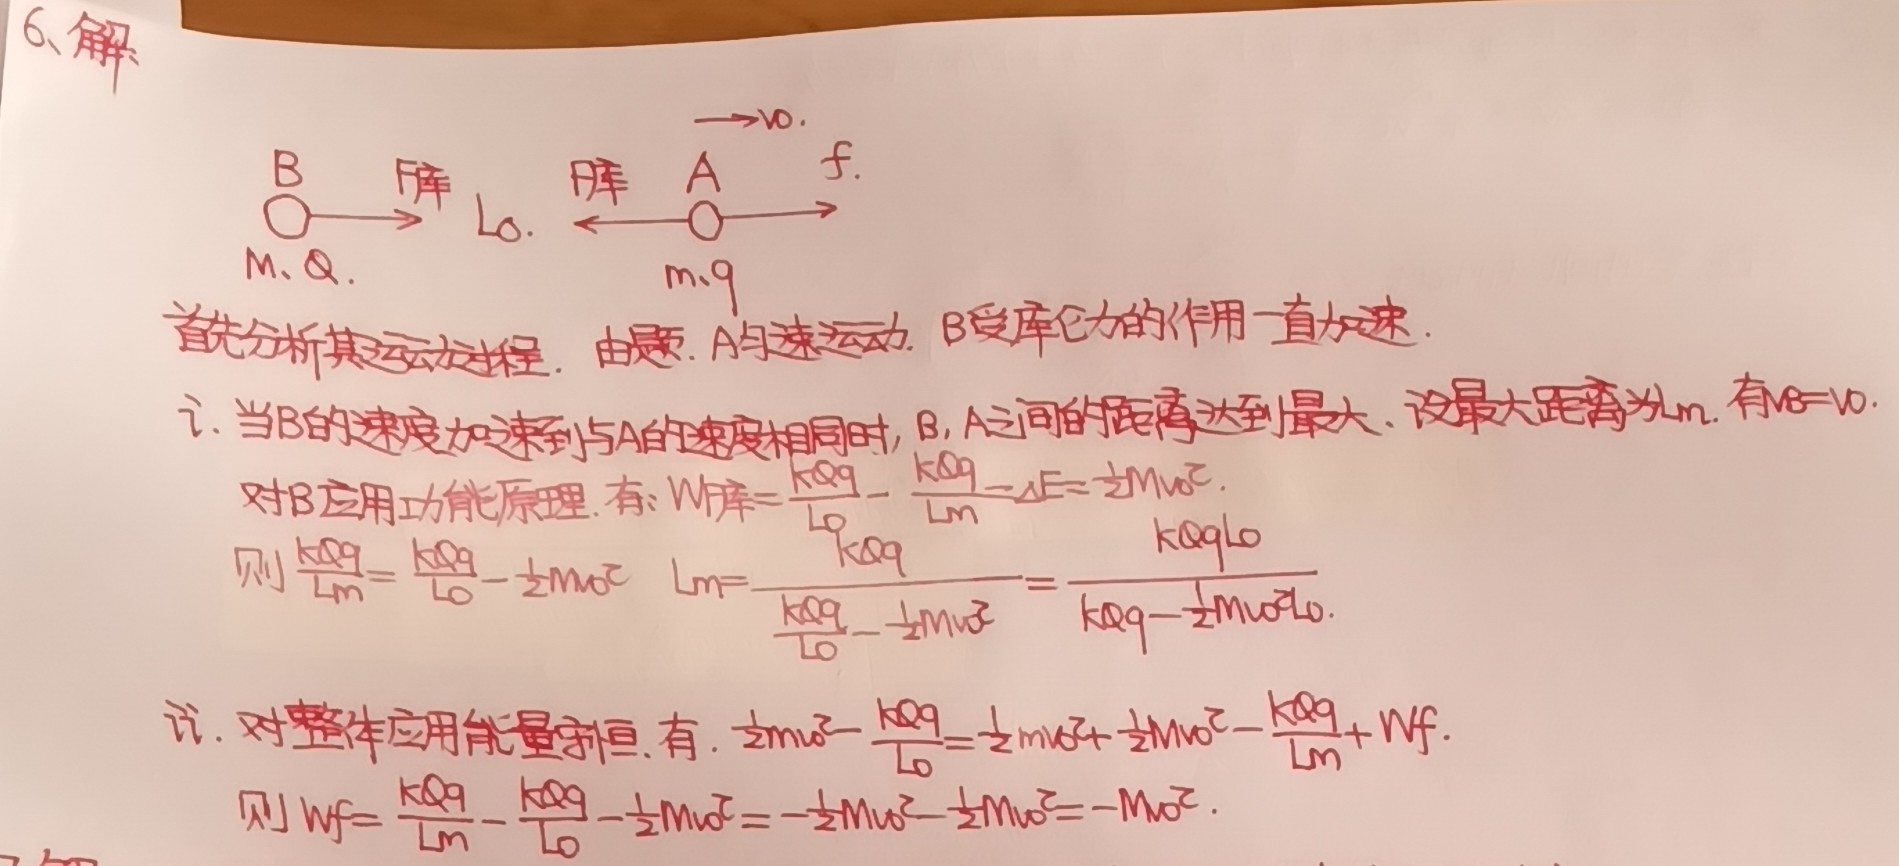 6、解
→v0.
B F库 L0. F库 A f.
M、Q. m、q
首先分析其运动过程. 由题. A匀速运动. B受库仑力的作用一直加速.
i. 当B的速度加速到与A的速度相同时, B, A之间的距离达到最大. 设最大距离为Lm. 有vB=v0.
对B应用功能原理. 有: WF库=kQq/L0-kQq/Lm-ΔE=½Mv0².
则 kQq/Lm=kQq/L0-½Mv0² Lm=kQq/(kQq/L0-½Mv0²)=kQqL0/(kQq-½Mv0²L0).
ii. 对整体应用能量守恒. 有. ½mv0²-kQq/L0=½mv0²+½Mv0²-kQq/Lm+Wf.
则 Wf=kQq/Lm-kQq/L0-½Mv0²=-½Mv0²-½Mv0²=-Mv0².